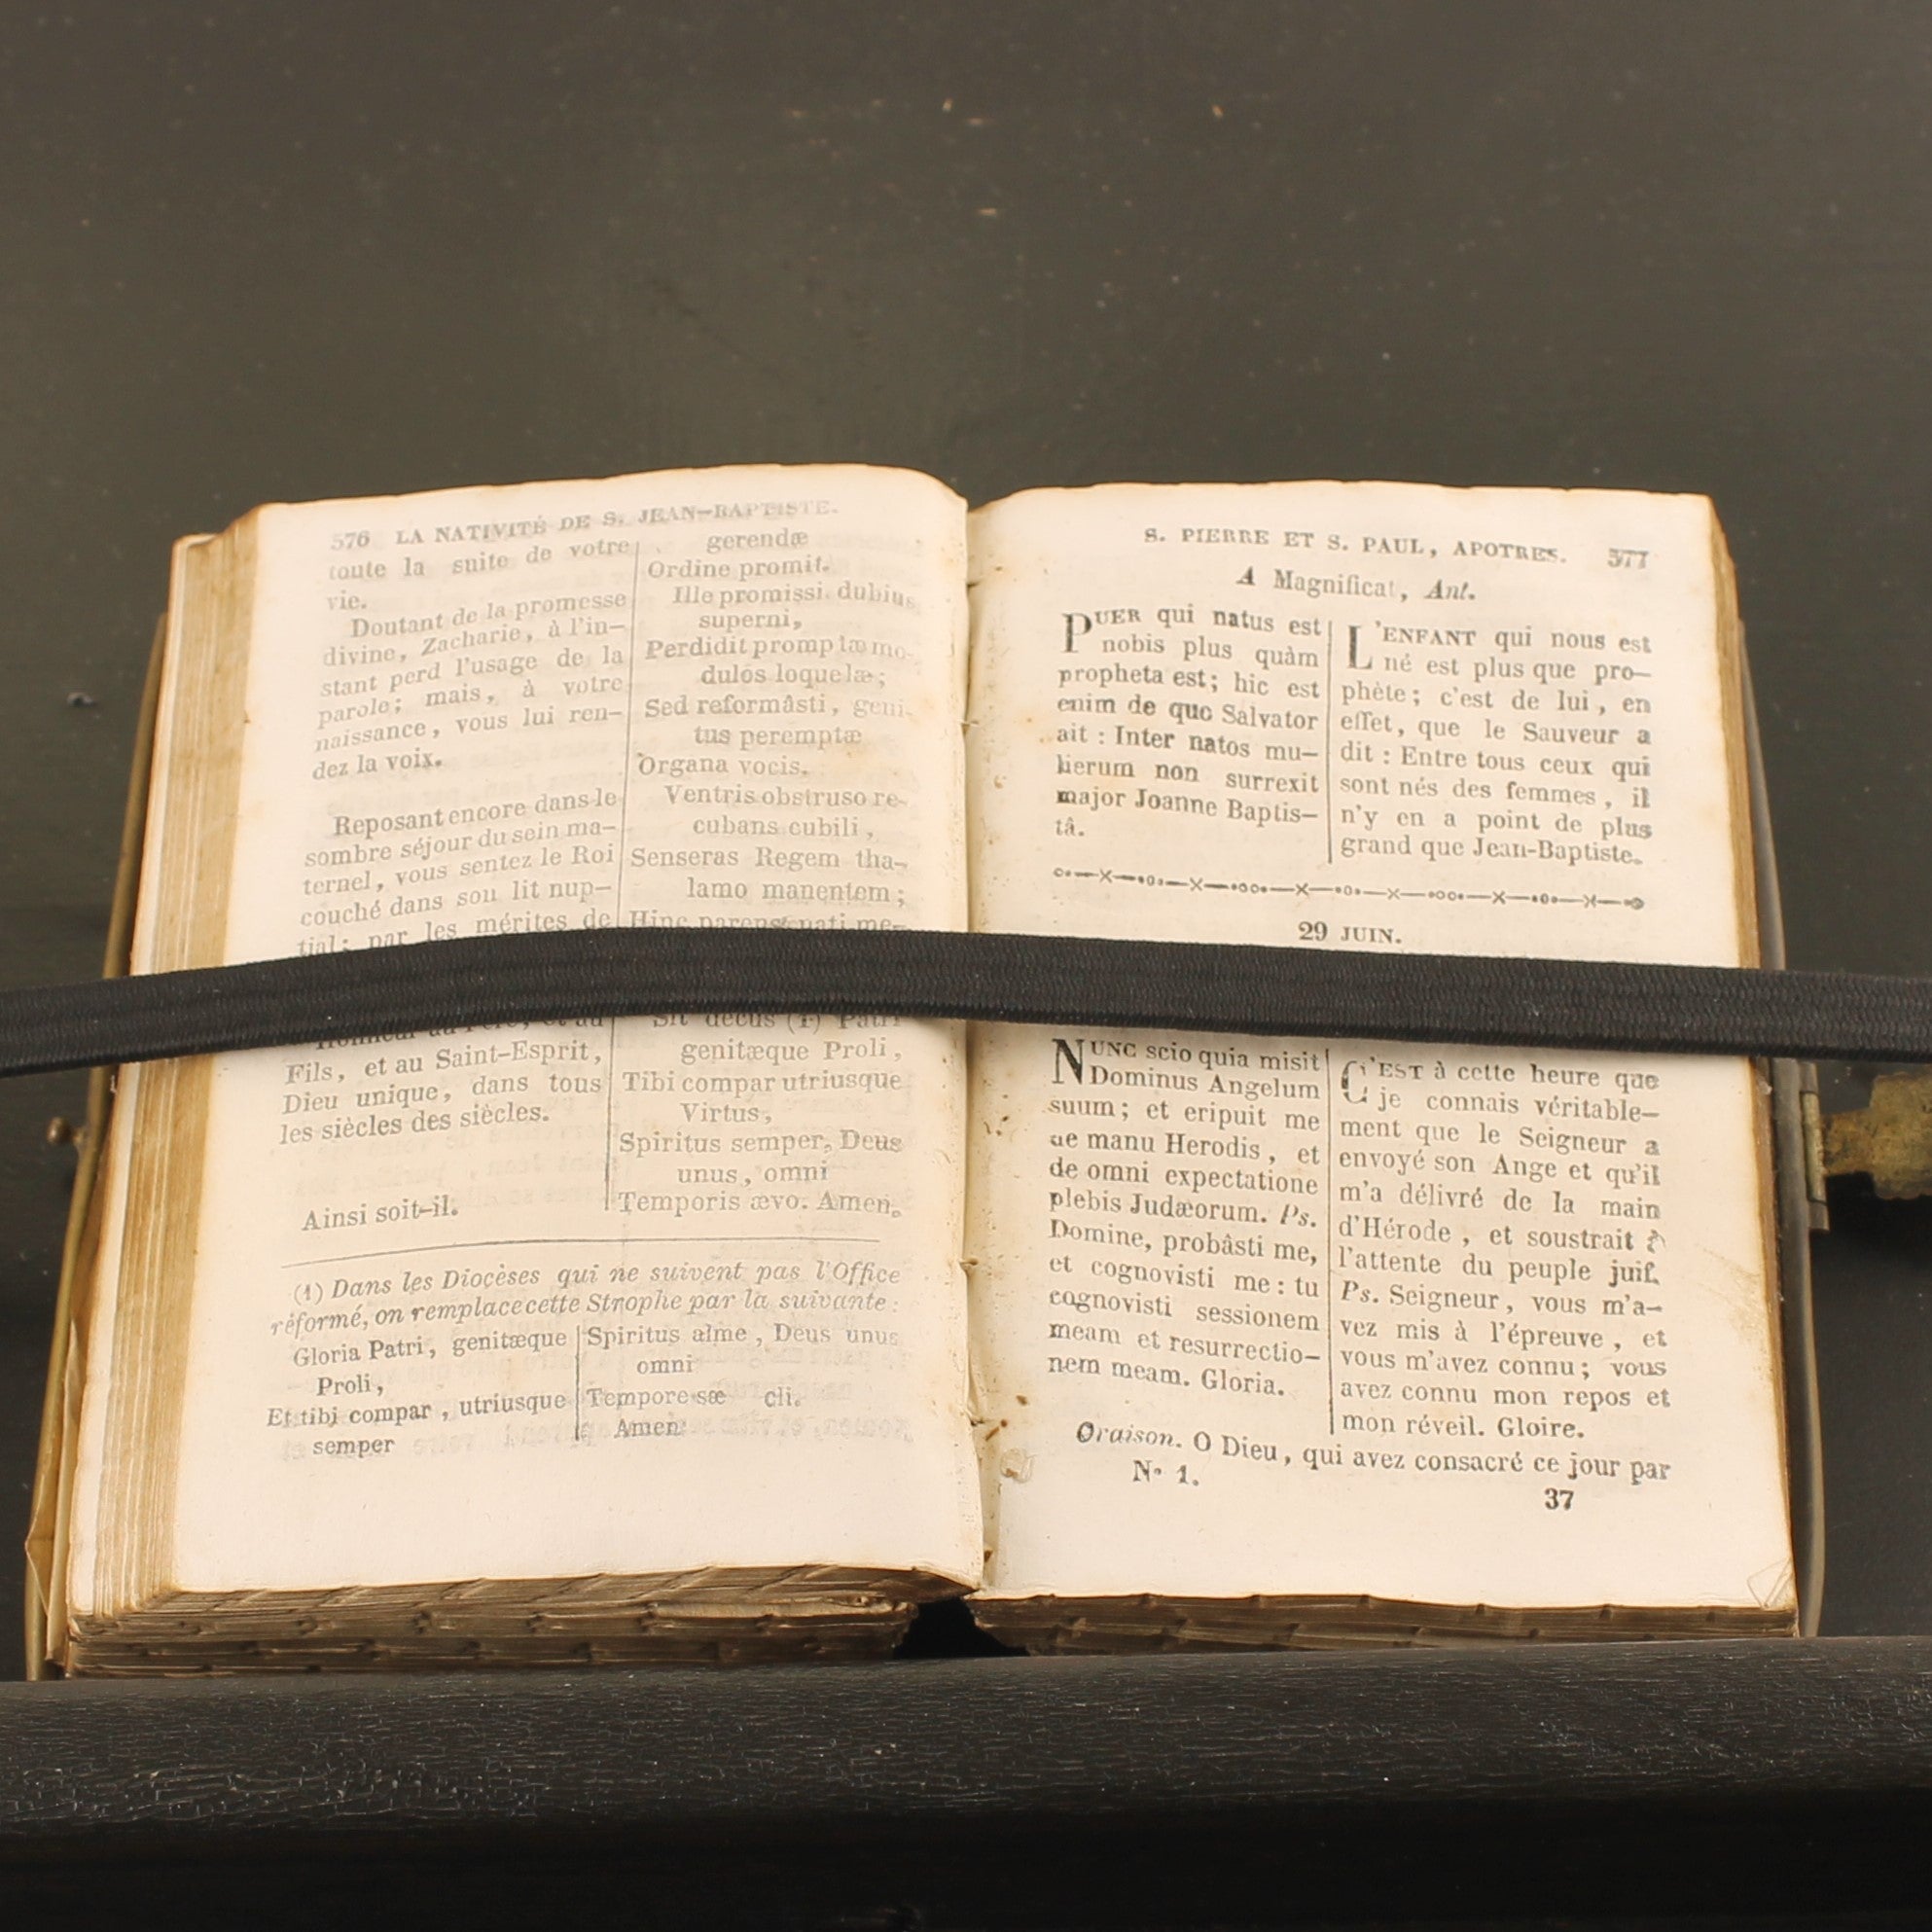 576 LA NATIVITÉ DE S. JEAN-BAPTISTE.
toute la suite de votre
vie.
Doutant de la promesse
divine, Zacharie, à l'in-
stant perd l'usage de la
parole; mais, à votre
naissance, vous lui ren-
dez la voix.
Reposant encore dans le
sombre séjour du sein ma-
ternel, vous sentez le Roi
couché dans son lit nup-
tial; par les mérites de
Honneur au Père, et au
Fils, et au Saint-Esprit,
Dieu unique, dans tous
les siècles des siècles.
Ainsi soit-il.
gerendæ
Ordine promit.
Ille promissi dubius
superni,
Perdidit promptæ mo-
dulos loquelæ;
Sed reformâsti, geni-
tus peremptæ
Organa vocis.
Ventris obstruso re-
cubans cubili,
Senseras Regem tha-
lamo manentem;
Hinc parens nati me-
Sit decus (1) Patri
genitæque Proli,
Tibi compar utriusque
Virtus,
Spiritus semper, Deus
unus, omni
Temporis ævo. Amen.
(1) Dans les Diocèses qui ne suivent pas l'Office
réformé, on remplace cette Strophe par la suivante:
Gloria Patri, genitæque
Proli,
Et tibi compar, utriusque
semper
Spiritus alme, Deus unus
omni
Tempore sæ cli.
Amen
S. PIERRE ET S. PAUL, APOTRES. 577
A Magnificat, Ant.
PUER qui natus est
nobis plus quàm
propheta est; hic est
enim de quo Salvator
ait: Inter natos mu-
lierum non surrexit
major Joanne Baptis-
tâ.
L'ENFANT qui nous est
né est plus que pro-
phète; c'est de lui, en
effet, que le Sauveur a
dit: Entre tous ceux qui
sont nés des femmes, il
n'y en a point de plus
grand que Jean-Baptiste.
29 JUIN.
NUNC scio quia misit
Dominus Angelum
suum; et eripuit me
de manu Herodis, et
de omni expectatione
plebis Judæorum. Ps.
Domine, probâsti me,
et cognovisti me: tu
cognovisti sessionem
meam et resurrectio-
nem meam. Gloria.
C'EST à cette heure que
je connais véritable-
ment que le Seigneur a
envoyé son Ange et qu'il
m'a délivré de la main
d'Hérode, et soustrait à
l'attente du peuple juif.
Ps. Seigneur, vous m'a-
vez mis à l'épreuve, et
vous m'avez connu; vous
avez connu mon repos et
mon réveil. Gloire.
Oraison. O Dieu, qui avez consacré ce jour par
No 1.
37